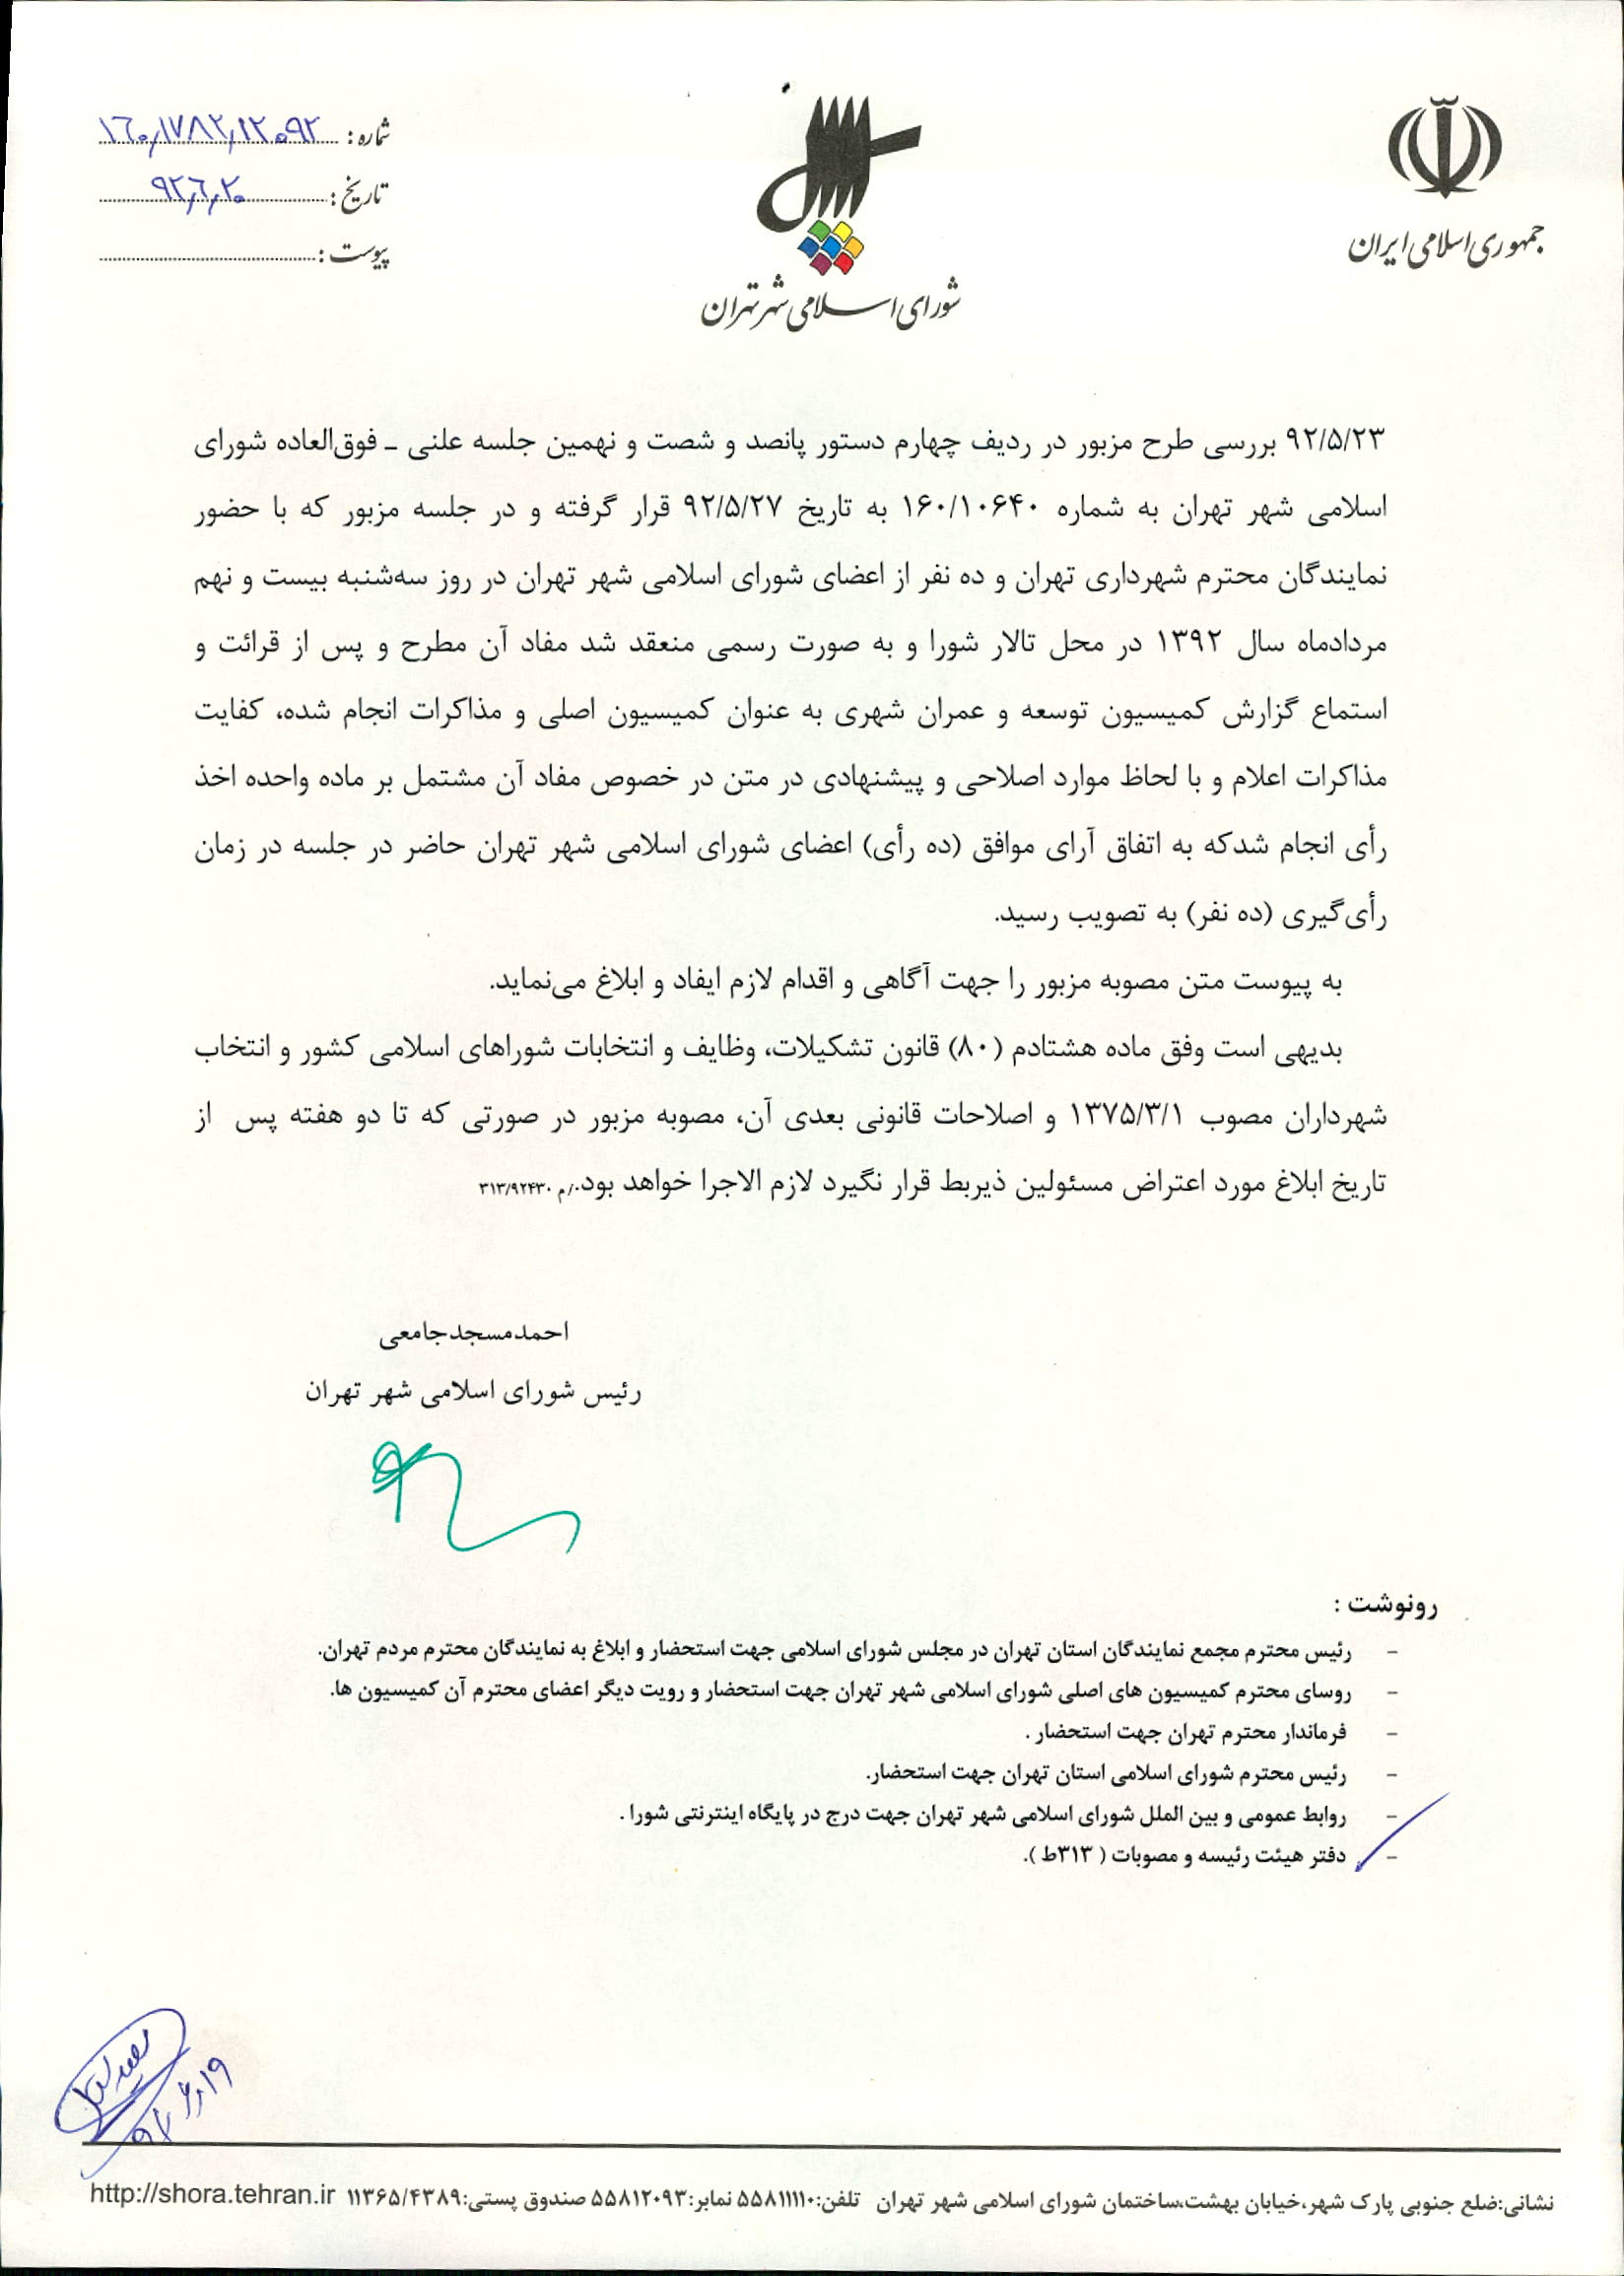 جمهوری اسلامی ایران
شورای اسلامی شهر تهران
شماره : ۱۶۰/۱۷۸۲/۱۲۰۹۲
تاریخ : ۹۲/۶/۲۰
پیوست :
۹۲/۵/۲۳ بررسی طرح مزبور در ردیف چهارم دستور پانصد و شصت و نهمین جلسه علنی ـ فوق‌العاده شورای
اسلامی شهر تهران به شماره ۱۶۰/۱۰۶۴۰ به تاریخ ۹۲/۵/۲۷ قرار گرفته و در جلسه مزبور که با حضور
نمایندگان محترم شهرداری تهران و ده نفر از اعضای شورای اسلامی شهر تهران در روز سه‌شنبه بیست و نهم
مردادماه سال ۱۳۹۲ در محل تالار شورا و به صورت رسمی منعقد شد مفاد آن مطرح و پس از قرائت و
استماع گزارش کمیسیون توسعه و عمران شهری به عنوان کمیسیون اصلی و مذاکرات انجام شده، کفایت
مذاکرات اعلام و با لحاظ موارد اصلاحی و پیشنهادی در متن در خصوص مفاد آن مشتمل بر ماده واحده اخذ
رأی انجام شدکه به اتفاق آرای موافق (ده رأی) اعضای شورای اسلامی شهر تهران حاضر در جلسه در زمان
رأی‌گیری (ده نفر) به تصویب رسید.
به پیوست متن مصوبه مزبور را جهت آگاهی و اقدام لازم ایفاد و ابلاغ می‌نماید.
بدیهی است وفق ماده هشتادم (۸۰) قانون تشکیلات، وظایف و انتخابات شوراهای اسلامی کشور و انتخاب
شهرداران مصوب ۱۳۷۵/۳/۱ و اصلاحات قانونی بعدی آن، مصوبه مزبور در صورتی که تا دو هفته پس از
تاریخ ابلاغ مورد اعتراض مسئولین ذیربط قرار نگیرد لازم الاجرا خواهد بود./م ۳۱۳/۹۲۴۳۰
احمدمسجدجامعی
رئیس شورای اسلامی شهر تهران
رونوشت :
- رئیس محترم مجمع نمایندگان استان تهران در مجلس شورای اسلامی جهت استحضار و ابلاغ به نمایندگان محترم مردم تهران.
- روسای محترم کمیسیون های اصلی شورای اسلامی شهر تهران جهت استحضار و رویت دیگر اعضای محترم آن کمیسیون ها.
- فرماندار محترم تهران جهت استحضار .
- رئیس محترم شورای اسلامی استان تهران جهت استحضار.
- روابط عمومی و بین الملل شورای اسلامی شهر تهران جهت درج در پایگاه اینترنتی شورا .
- دفتر هیئت رئیسه و مصوبات ( ۳۱۳ط ).
۹۲/۶/۱۹
نشانی:ضلع جنوبی پارک شهر،خیابان بهشت،ساختمان شورای اسلامی شهر تهران تلفن:۵۵۸۱۱۱۱۰ نمابر:۵۵۸۱۲۰۹۳ صندوق پستی:۱۱۳۶۵/۴۳۸۹ http://shora.tehran.ir